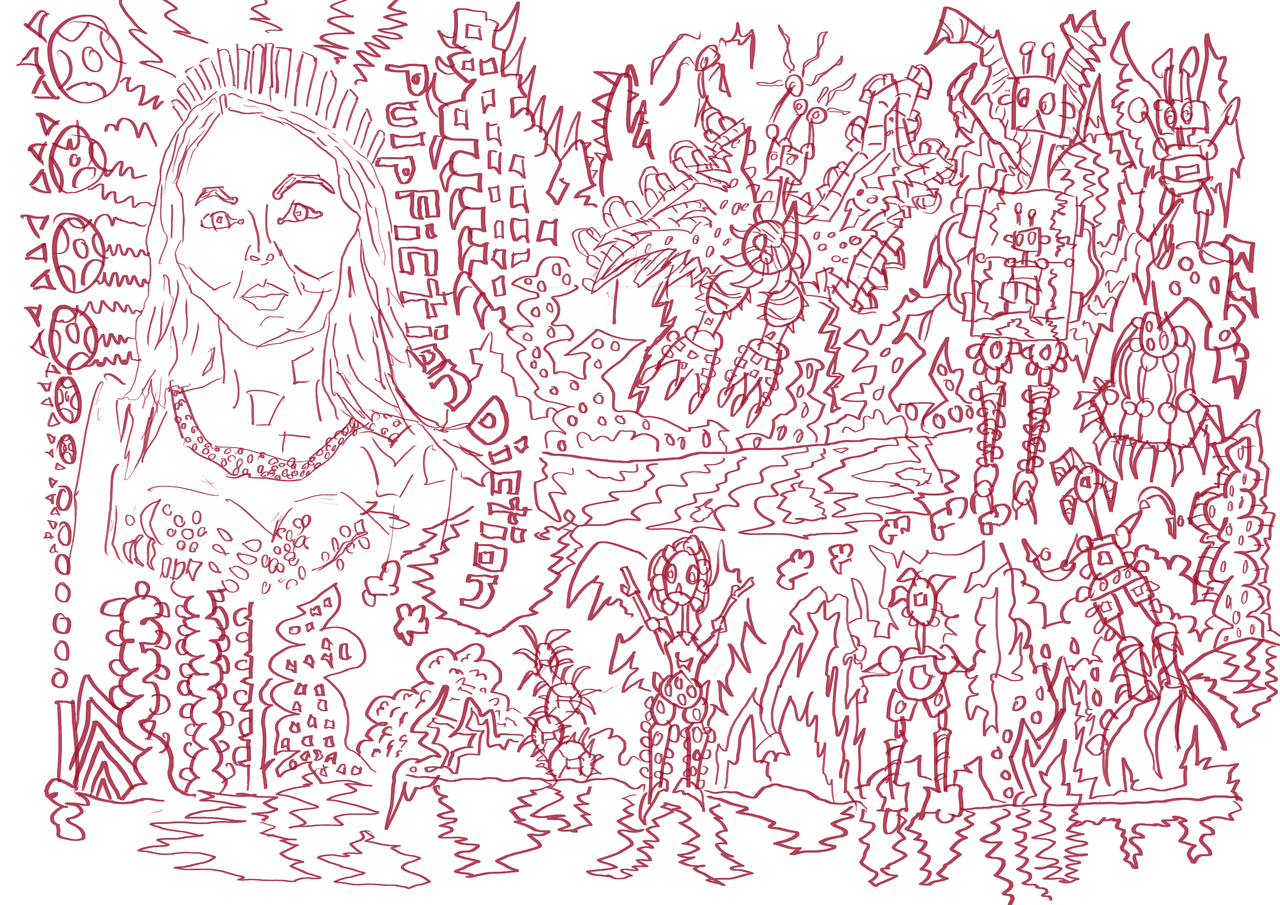 PurPECtion
Diction